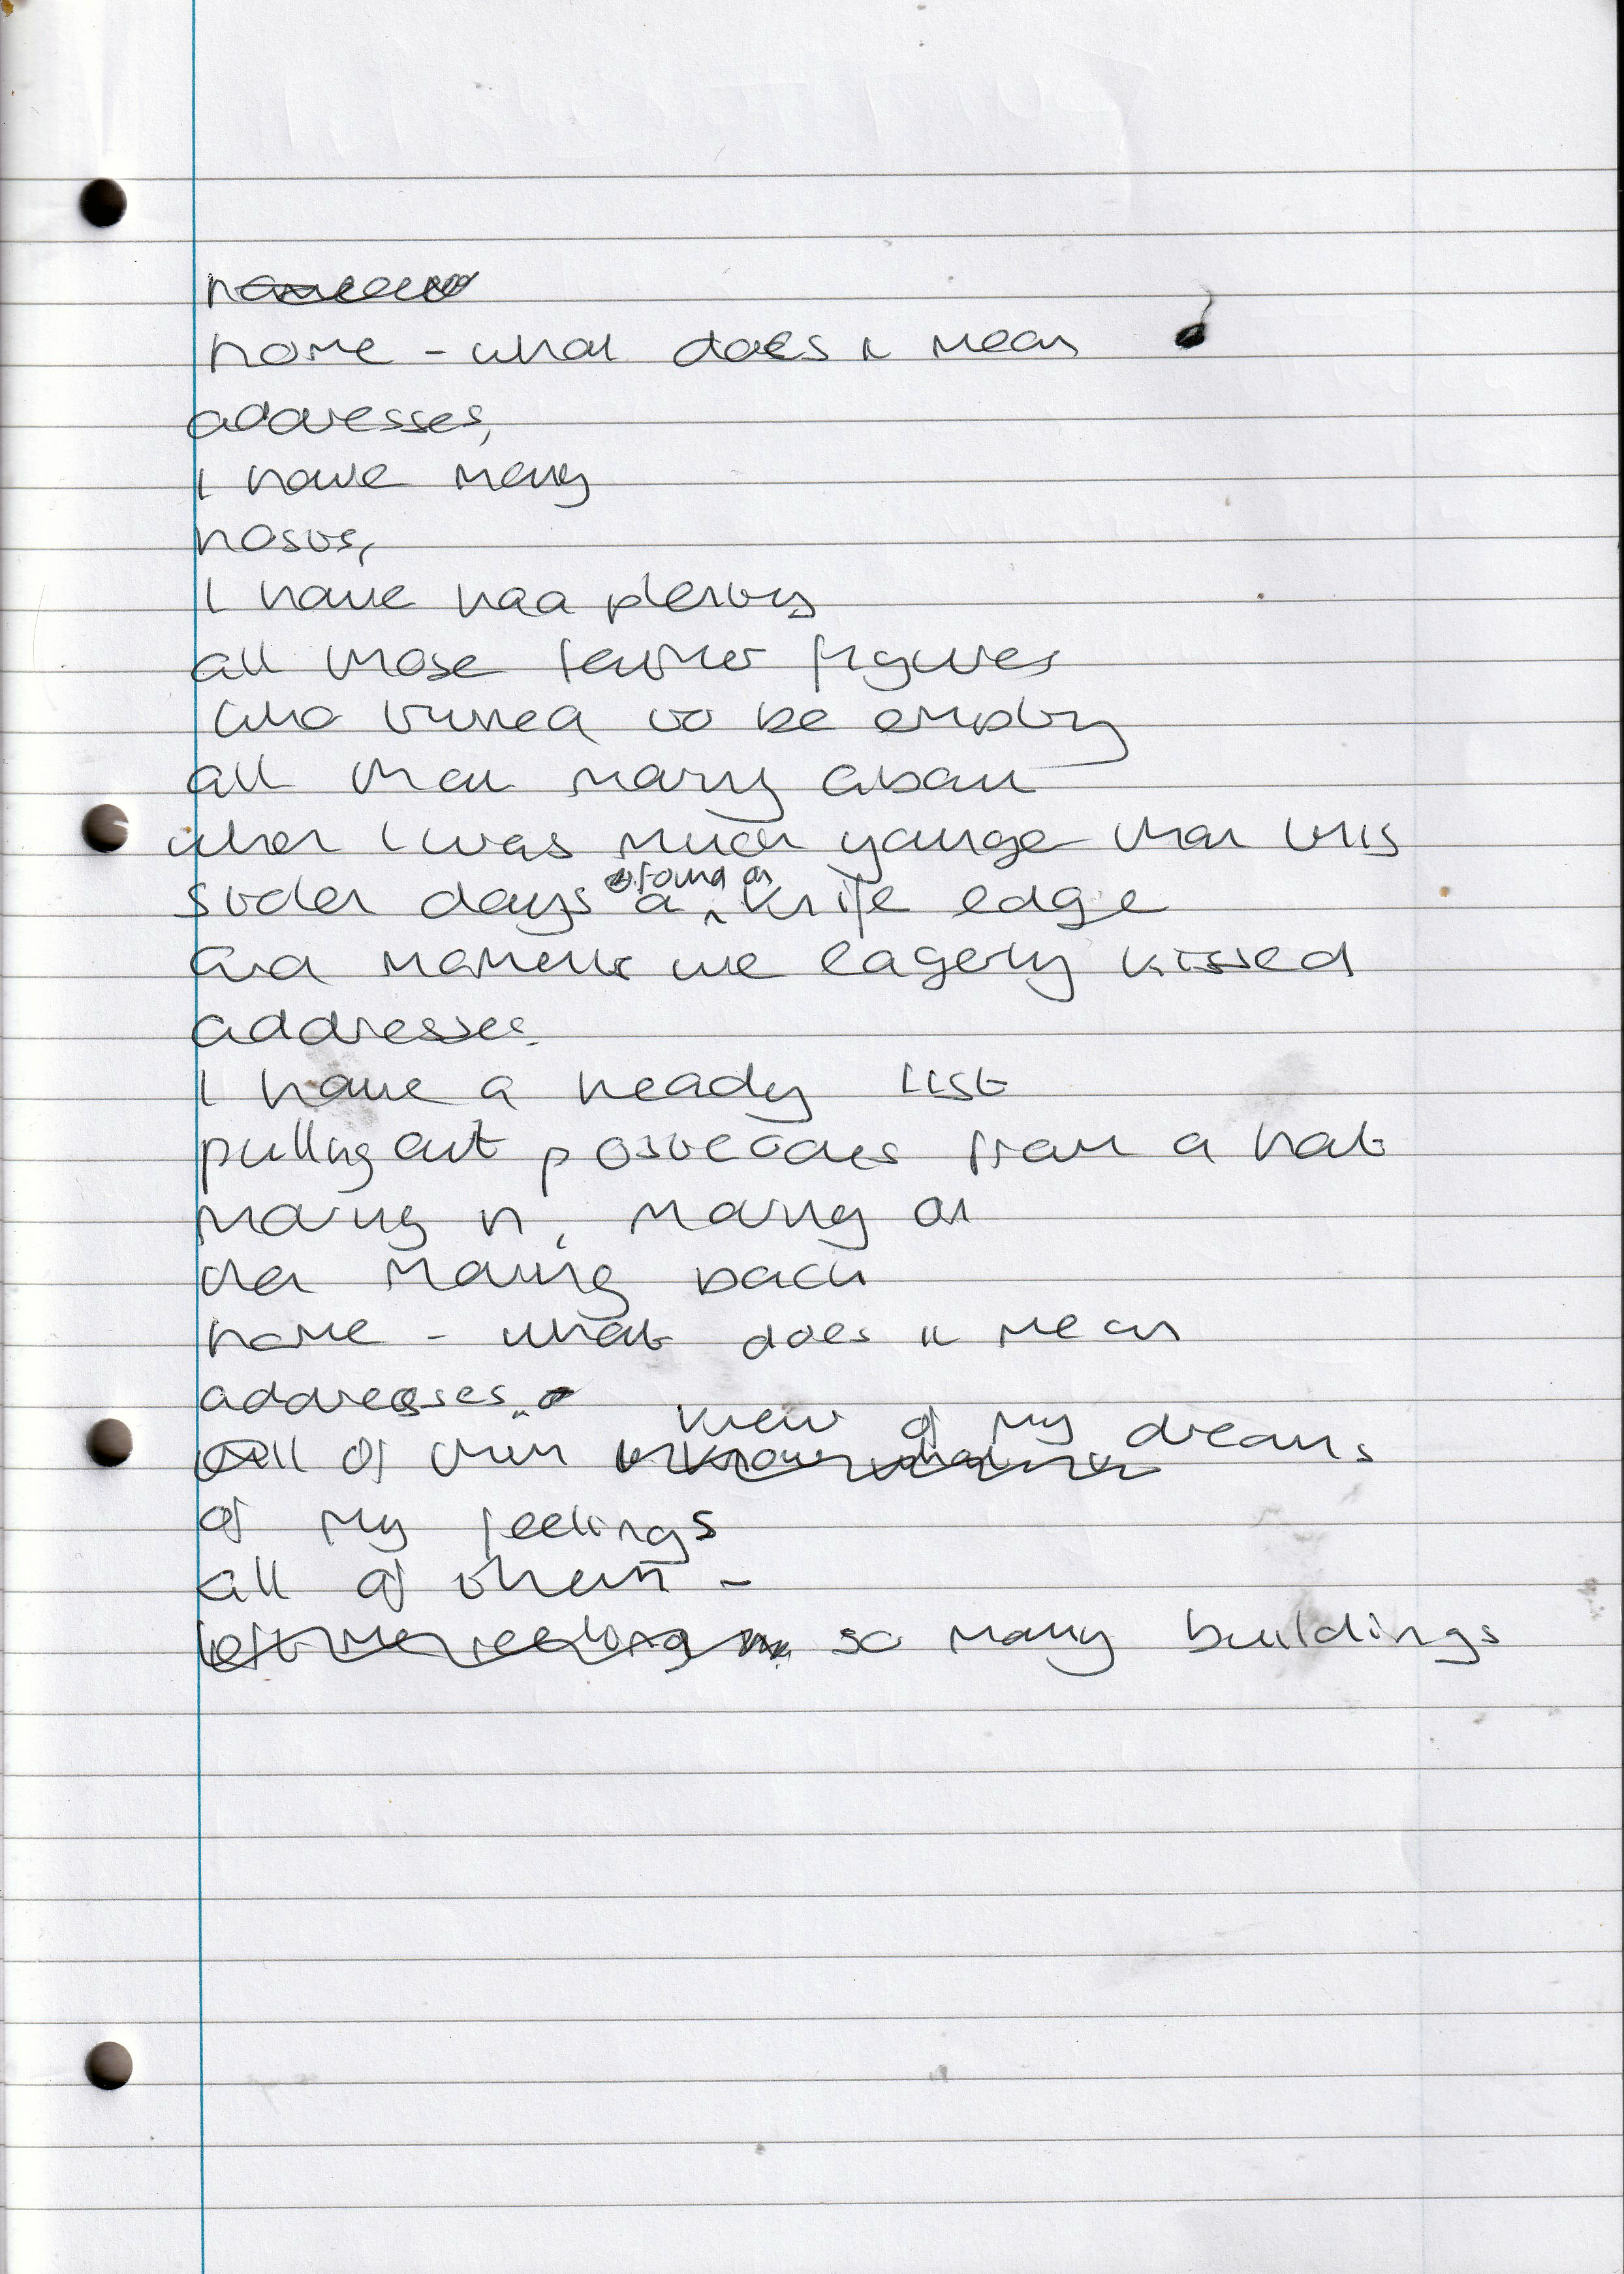 home - what does it mean
addresses,
I have many
hosts,
I have had plenty
all those father figures
who turned to be empty
all that moving about
when I was much younger than this
stolen days found on a knife edge
and moments we eagerly kissed
addresses.
I have a heady list
pulling out postcodes from a hat
moving in, moving on
then moving back
home - what does it mean
addresses..
all of them knew of my dreams
of my feelings
all of them -
so many buildings